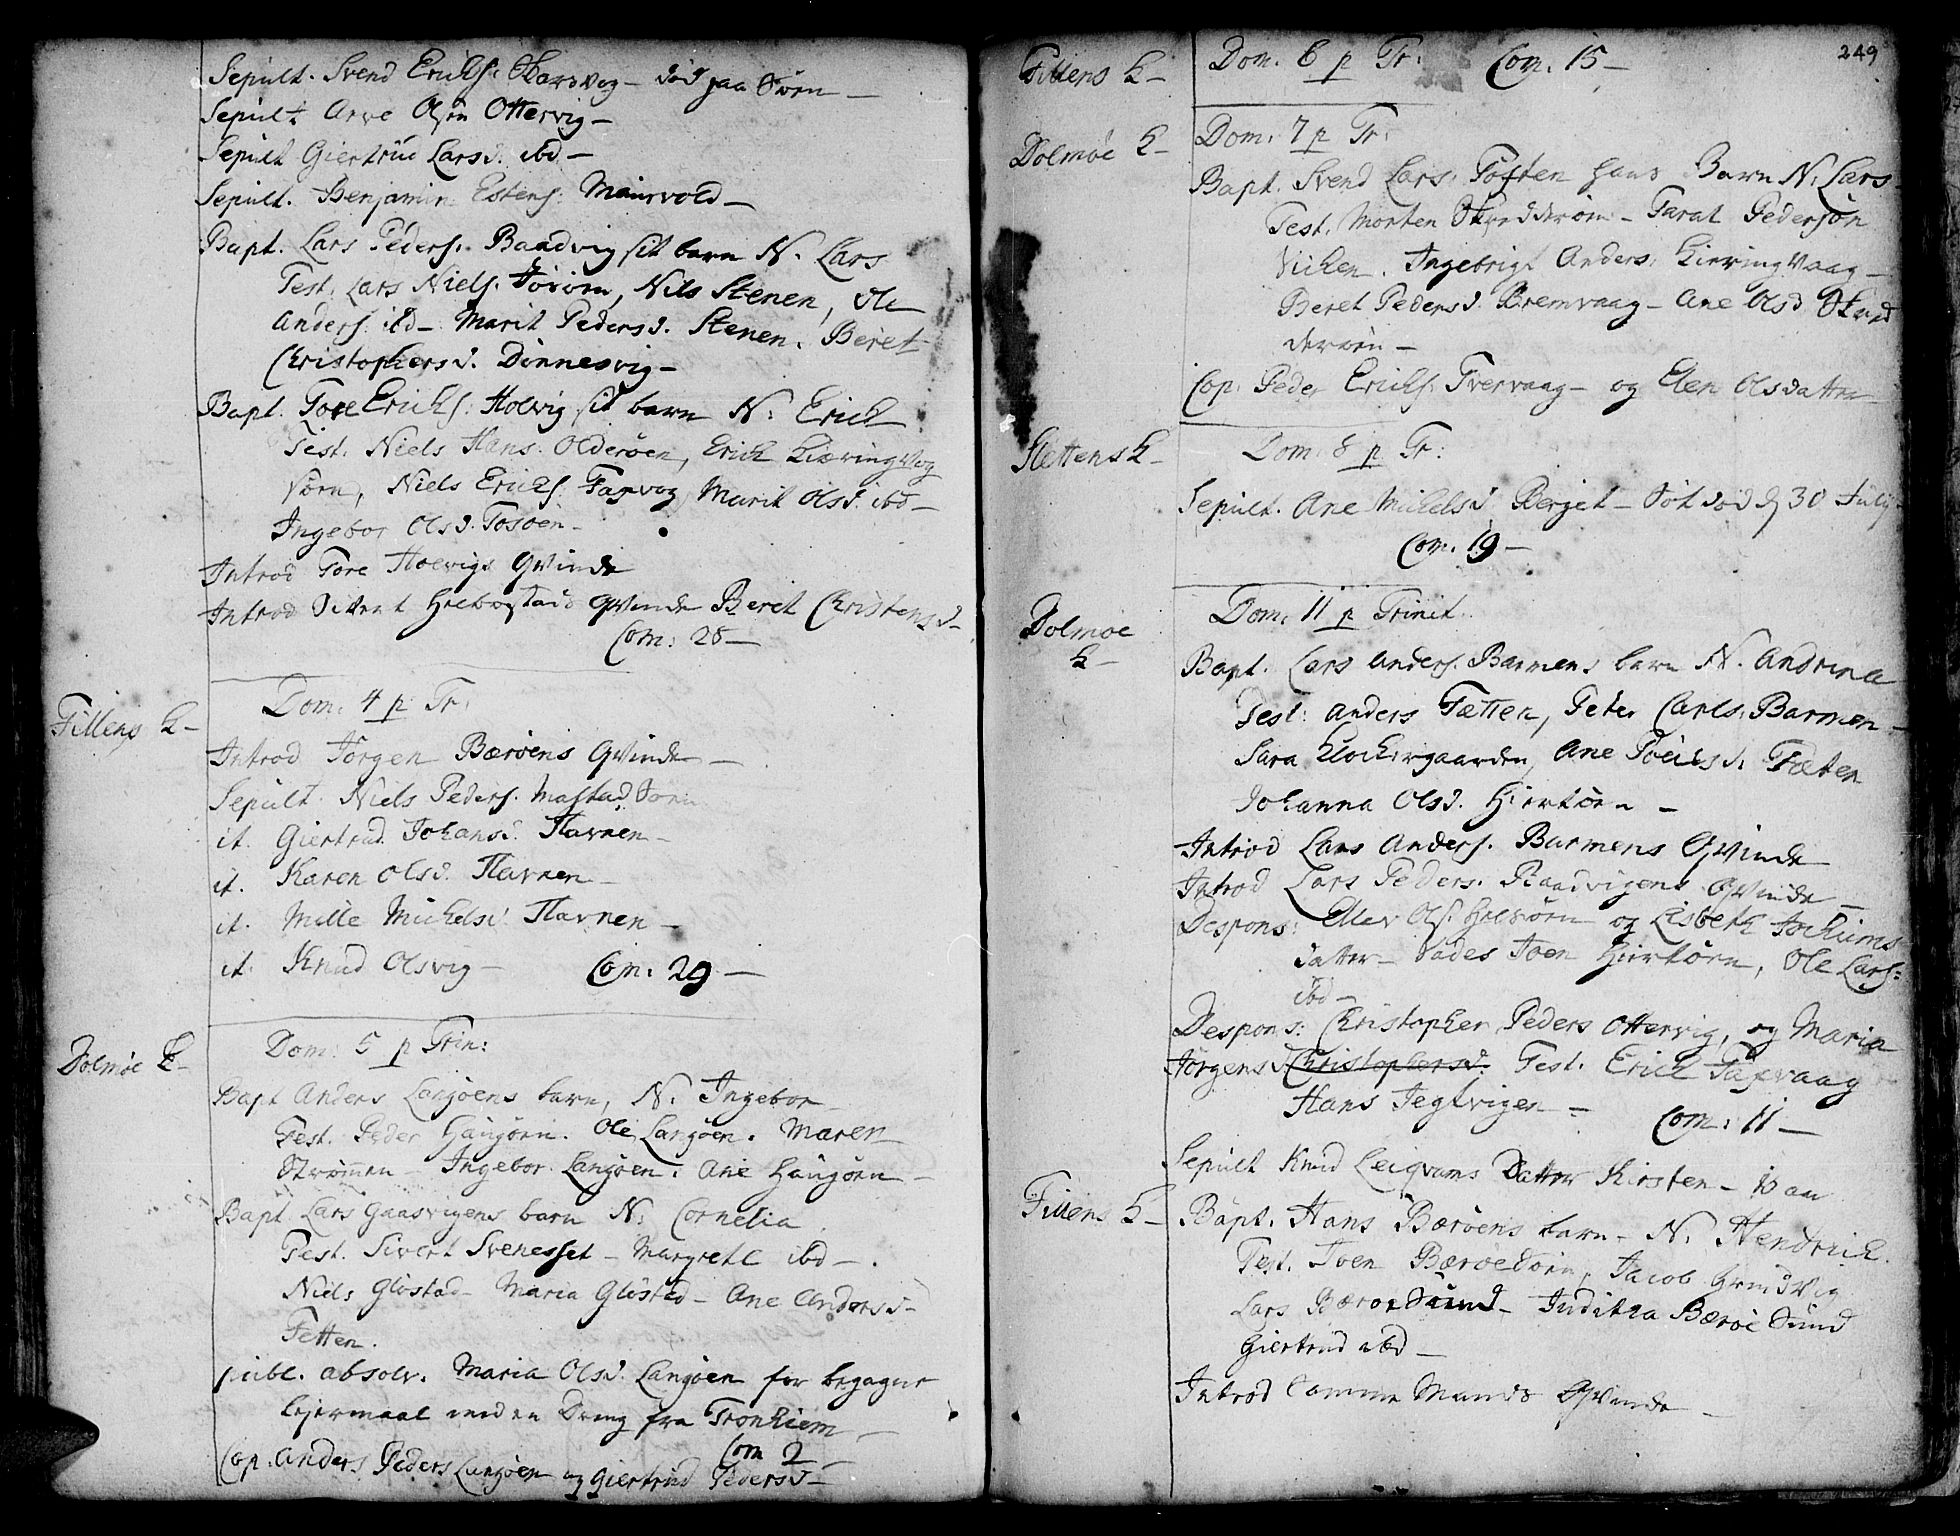 Sepult. Svend Erichs: Skarsvog - død paa Søen -
Sepult Arve Olsøn Ottervig -
Sepult Giertrud Larsd. ibd -
Sepult. Benjamin Estens: Maursvold -
Bapt. Lars Peders. Baadvig sit barn N. Lars
Test. Lars Niels. , Nils Stenen, Ole
Anders. ibd - Marit Pedersd. Stenen. Beret
Christophersd. Dønnesvig -
Bapt. Tore Erichs: Holvig sit barn N. Erich
Test. Niels Hans. Olderøen, Erich Kiæringvog
Niels Erichs. Faxvog, Marit Olsd. ibd -
Ingebor Olsd. Tosøen -
Introd Tore Hoevigs Qvinde
Introd Sivert Qvinde Beret Christensd -
Com: 28 -
Fillens K -
Dom: 4 p Tr.
Introd Jørgen Bærøens Qvinde -
Sepult. Niels Peders. Mastad
it. Giertrud Johansd. Havnen -
it. Karen Olsd. Havnen -
it. Mille Michelsd Havnen -
it. Knud Olsvig - Com: 29 -
Dolmøe K -
Dom: 5 p Trin:
Bapt Anders Langøens barn, N. Ingebor -
Test. Peder Haugøen. Ole Langøen. Maren
Strømmen - Ingebor Langøen. Ane Haugøen -
Bapt Lars Gaasvigens barn N: Cornelia
Test. Sivert Svenesset - Margrete ibd -
Niels Gløstad - Maria Gløstad - Ane Andersd -
Fetten.
publ. absolv. Maria Olsd. Langøen for begaget
lejermaal med en Dreng fra Tronhiem -
Com 2 -
Cop. Anders Peders Langøen og Giertrud Pedersd -
249
Fillens K -
Dom. 6 p Tr: Com. 15 -
Dolmøe K -
Dom: 7 p Tr:
Bapt. Svend Lars. Tøften hans Barn N. Lars -
Test. Morten - Taral Pedersøn
Vichen. Ingebrigt Anders. Kierringvaag -
Beret Pedersd. Bremvaag - Ane Olsd
Cop. Peder Erichs. Tvervaag - og Elen Olsdatter
Slettens K -
Dom: 8 p Tr:
Sepult. Ane Michelsd Berget - død d 30 July
Com. 19 -
Dolmøe
K -
Dom. 11 p Trinit.
Bapt. Lars Anders. Barmens barn N. Andrina
Test: Anders Fætten, Peter Carls. Barmen -
Sara Klockergaarden, Ane Fæten
Johanna Olsd. Hiertøen -
Introd Lars Anders. Barmens Qvinde
Introd Lars Peders. Baadvigens Qvinde -
Despons: Ellev Ols. og Lisbeth Jochums
datter - Joen Hiertøen, Ole Lars:
ibd -
Despons: Christopher Peders Ottervig, og Maria
Jørgensd Christophersd. Test. Erich Faxvaag
Hans Teglvigen - Com: 11 -
Sepult Knud Leiqvams Datter Kirsten - 10 aar
Fillens K -
Bapt. Hans Bærøens barn - N. Hendrich.
Test. Joen Bærøe Jacob Grindvig
Lars Bærøe Sund - Juditha Bærøe Sund
Giertrud ibd -
Introd samme Mands Qvinde -